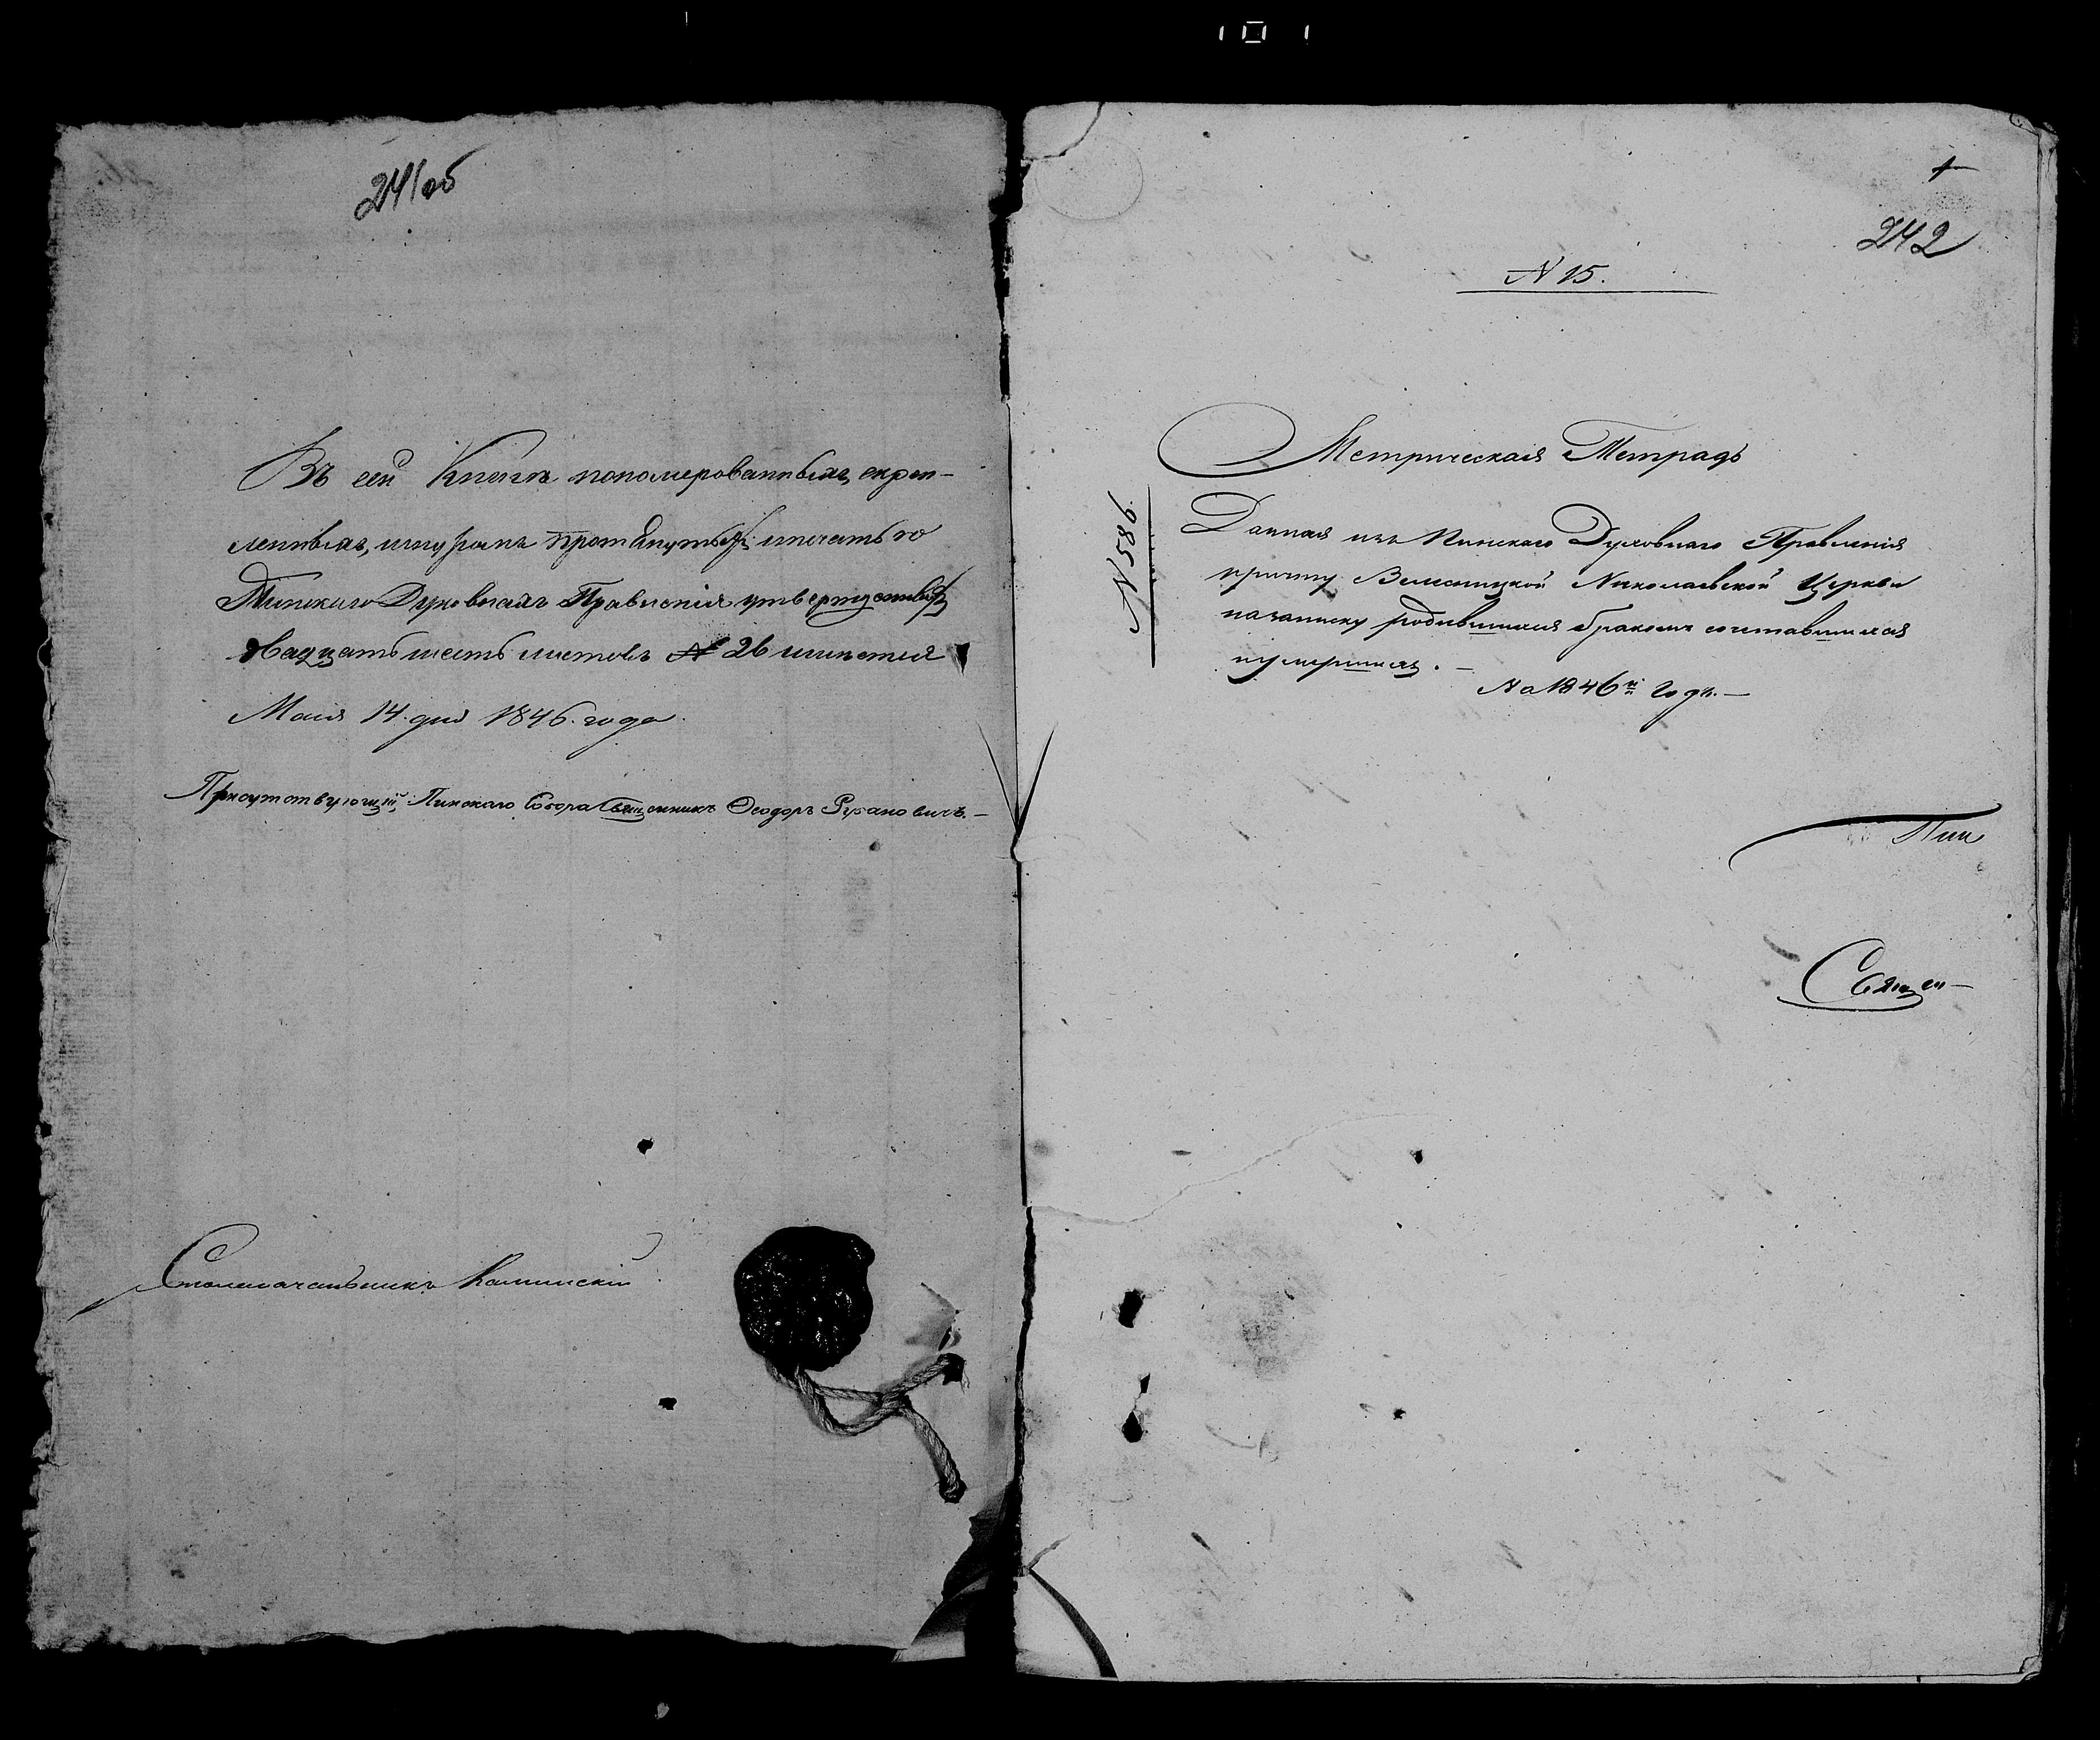 101
241об
Въ сей Книгѣ пономерованныхъ, скреп-
ленныхъ, шнуромъ протянутыхъ и печатью
Пинскаго Духовнаго Правленія утвержденныхъ
двадцать шесть листовъ № 26 имѣется
Маія 14 дня 1846 года.
Присутствующій Пинскаго Собора Священникъ Ѳеодоръ
Столоначальникъ
242
№ 15.
№ 586.
Метрическая Тетрадь
Данная изъ Пинскаго Духовнаго Правленія
причту Велесницкой Николаевской Церкви
на записку родившихся бракомъ сочетавшихся
и умершихъ. —
На 1846й годъ. —
Пин
Священ—